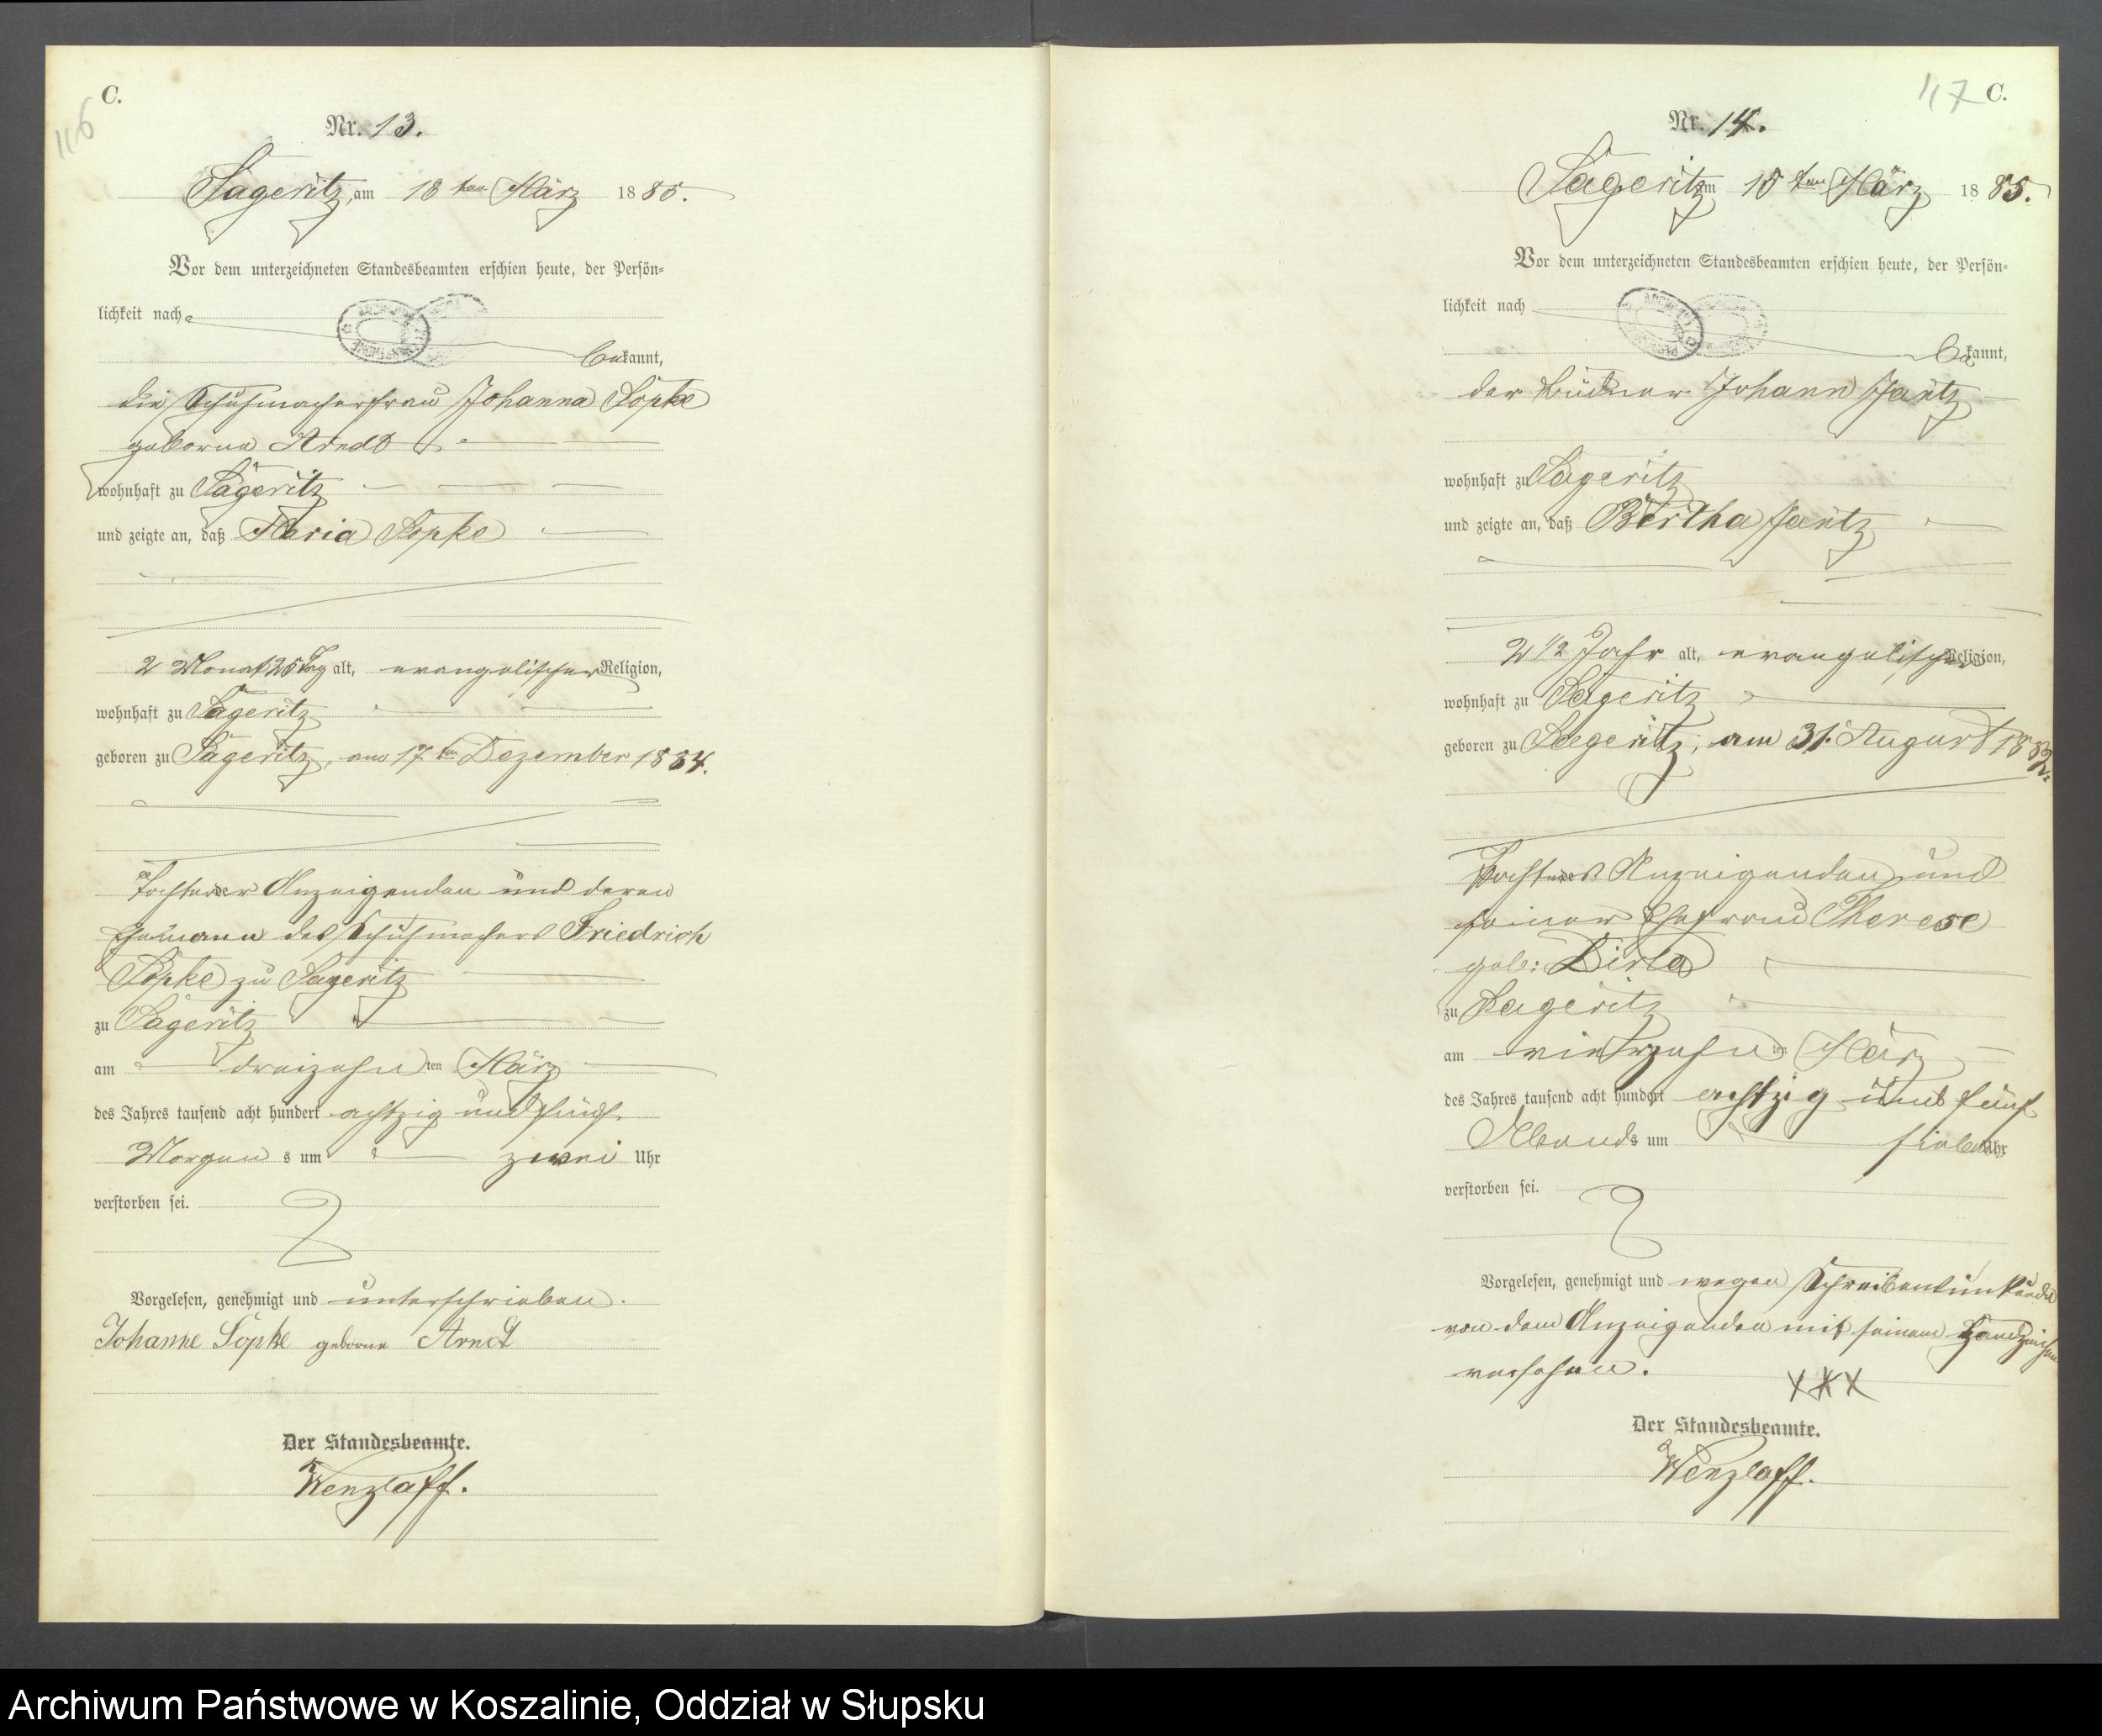 C.
116
Nr. 13.
Sageritz, am 13 ten März 1885.
Vor dem unterzeichneten Standesbeamten erschien heute, der Persön-
lichkeit nach
bekannt,
die Schuhmacherfrau Johanna Sopke
geborne Arndt
wohnhaft zu Sageritz
und zeigte an, daß Maria Sopke
2 Monat 25 Tag alt, evangelischer Religion,
wohnhaft zu Sageritz
geboren zu Sageritz, am 17 ten Dezember 1884.
Tochter der Anzeigenden und deren
Ehemann des Schuhmachers Friedrich
Sopke zu Sageritz
zu Sageritz
am dreizehn ten März
des Jahres tausend acht hundert achtzig und fünf
Morgens um zwei Uhr
verstorben sei.
Vorgelesen, genehmigt und unterschrieben.
Johanne Sopke geborne Arndt
Der Standesbeamte.
Wenzlaff.
117 C.
Nr. 14.
Sageritz am 15 ten März 1885.
Vor dem unterzeichneten Standesbeamten erschien heute, der Persön-
lichkeit nach
bekannt,
der Büdner Johann Jantz
wohnhaft zu Sageritz
und zeigte an, daß Bertha Jantz
2 1/2 Jahr alt, evangelischer Religion,
wohnhaft zu Sageritz
geboren zu Sageritz, am 31. August 1882.
Tochter des Anzeigenden und
seiner Ehefrau Therese
geb:
zu Sageritz
am vierzehn ten März
des Jahres tausend acht hundert achtzig und fünf
Abends um sieben Uhr
verstorben sei.
Vorgelesen, genehmigt und wegen Schreibensunkunde
von dem Anzeigenden mit seinem Handzeichen
versehen.
XXX
Der Standesbeamte.
Wenzlaff.
Archiwum Państwowe w Koszalinie, Oddział w Słupsku